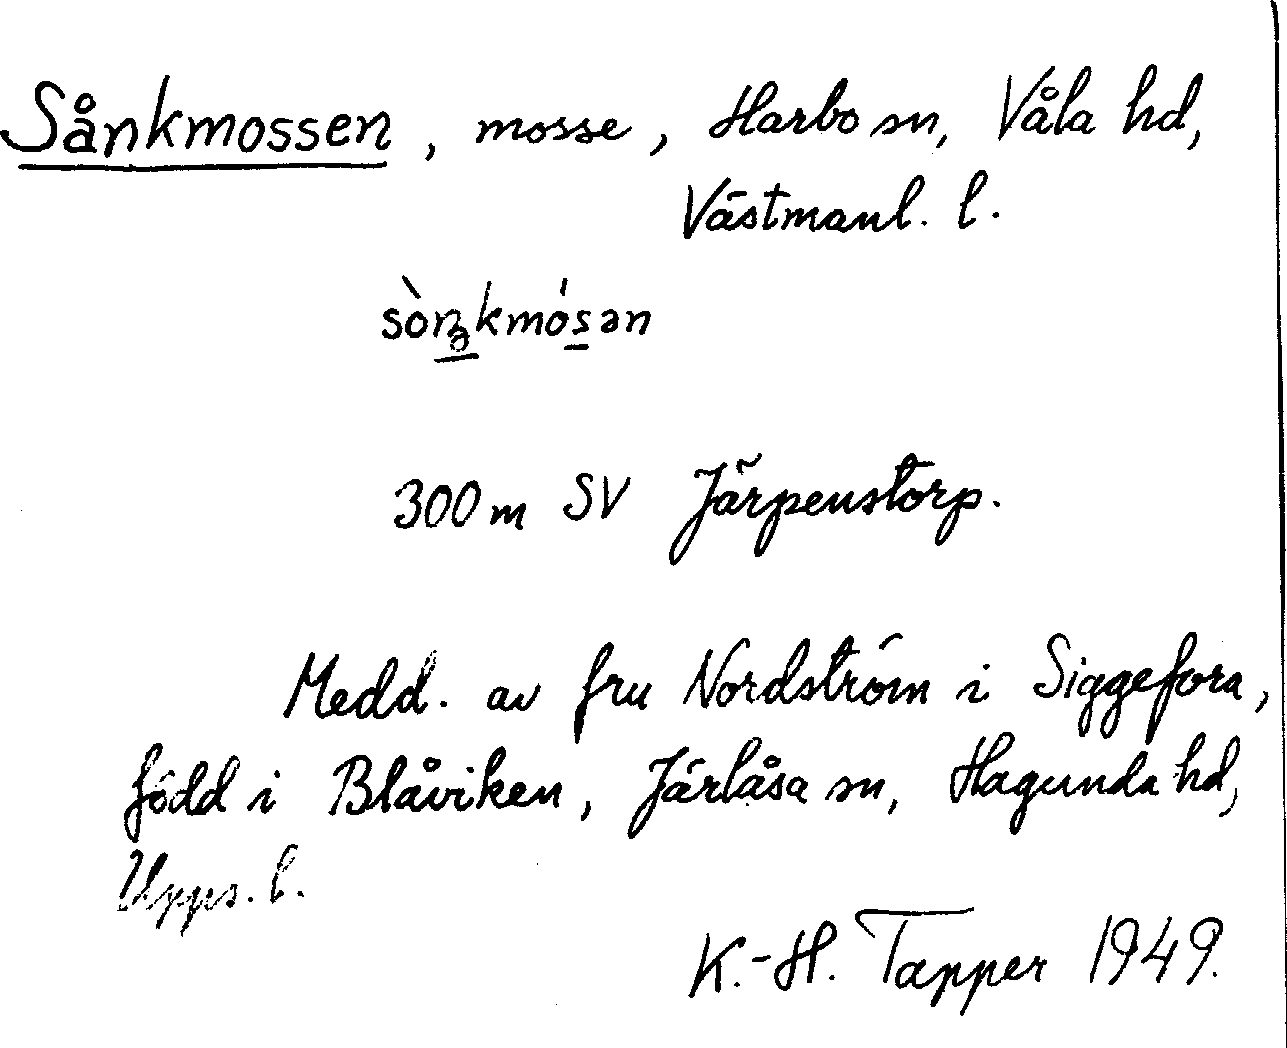 Sånkmossen, mosse, Harbo sn, Våla hd,
Västmanl. l.
sòŋkmósən
300 m SV Järpenstorp.
Medd. av fru Nordström i Siggefora,
född i Blåviken, Järlåsa sn, Hagunda hd,
Upps. l.
K.-H. Tapper 1949.